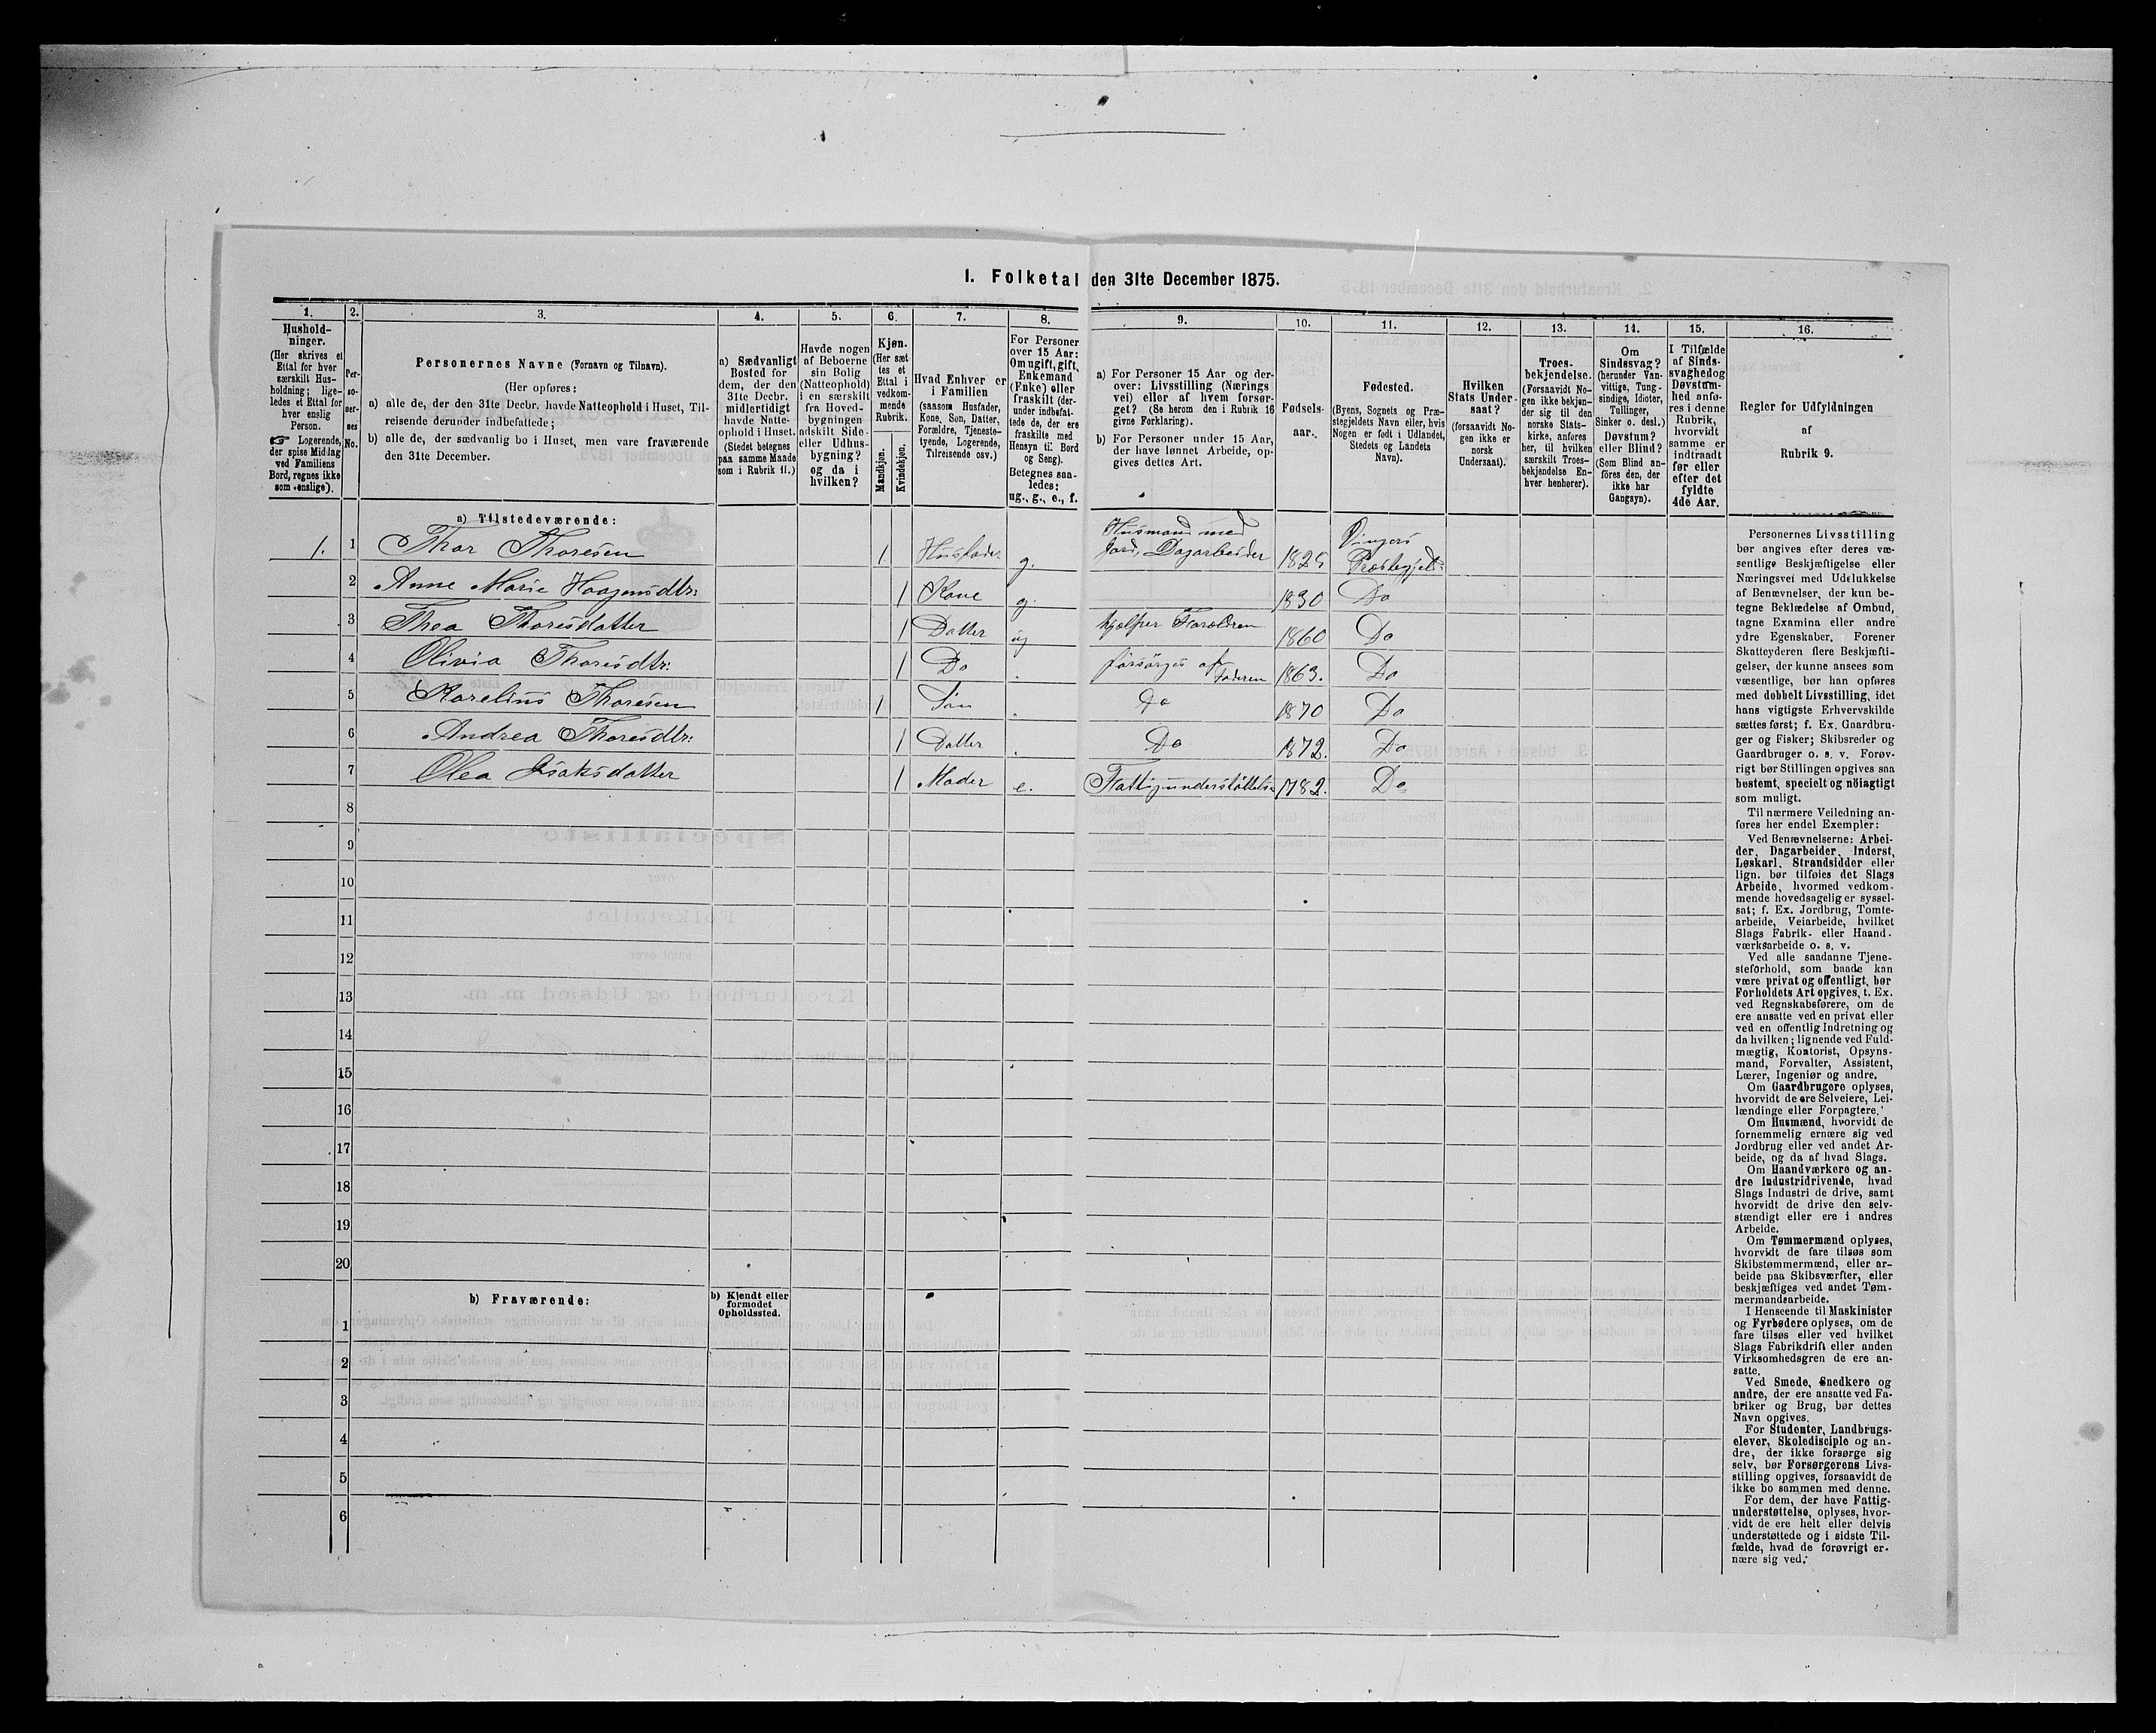 I. Folketal den 31te December 1875.
1.
Hushold-
ninger.
(Her skrives et
Ettal for hver
særskilt Hus-
holdning; lige-
ledes et Ettal for
hver enslig
Person.
☞ Logerende,
der spise Middag
ved Familiens
Bord, regnes ikke
som enslige).
2.
Per-
so-
ner-
nes
No.
3.
Personernes Navne (Fornavn og Tilnavn).
(Her opføres:
a) alle de, der den 31te Decbr. havde Natteophold i Huset, Til-
reisende derunder indbefattede;
b) alle de, der sædvanlig bo i Huset, men vare fraværende
den 31te December.
4.
a) Sædvanligt
Bosted for
dem, der den
31te Decbr.
midlertidigt
havde Natte-
ophold i Huset.
(Stedet betegnes
paa samme Maade
som i Rubrik 11.)
5.
Havde nogen
af Beboerne
sin Bolig
(Natteophold)
i en særskilt
fra Hoved-
bygningen
adskilt Side-
eller Udhus-
bygning?
og da i
hvilken?
6.
Kjøn.
(Her sæt
tes et
Ettal i
vedkom-
mende
Rubrik.
Mandkjøn.
Kvindekjøn.
7.
Hvad Enhver er
i Familien
(saasom Husfader,
Kone, Søn, Datter,
Forældre, Tjeneste-
tyende, Logerende,
Tilreisende osv.)
8.
For Personer
over 15 Aar:
Om ugift, gift,
Enkemand
(Enke) eller
fraskilt (der-
under indbefat-
tede de, der ere
fraskilte med
Hensyn til Bord
og Seng).
Betegnes saa-
ledes:
ug., g., e., f.
9.
a) For Personer 15 Aar og der-
over: Livsstilling (Nærings
vei) eller af hvem forsør-
get? (Se herom den i Rubrik 16
givne Forklaring).
b) For Personer under 15 Aar,
der have lønnet Arbeide, op-
gives dettes Art.
10.
Fødsels-
aar.
11.
Fødested.
(Byens, Sognets og Præ-
stegjeldets Navn eller, hvis
Nogen er født i Udlandet,
Stedets og Landets
Navn).
12.
Hvilken
Stats Under-
saat?
(forsaavidt No-
gen ikke er
norsk
Undersaat).
13.
Troes-
bekjendelse.
(Forsaavidt No-
gen ikke bekjen-
der sig til den
norske Stats-
kirke, anføres
her, til hvilken
særskilt Troes-
bekjendelse En-
hver henhører).
14.
Om
Sindssvag?
(herunder Van-
vittige, Tung-
sindige, Idioter,
Tullinger,
Sinker o. desl.)
Døvstum?
eller Blind?
(Som Blind an-
føres den, der
ikke har
Gangsyn).
15.
I Tilfælde
af Sinds-
svaghed og
Døvstum-
hed anfø-
res i denne
Rubrik,
hvorvidt
samme er
indtraadt
før eller
efter det
fyldte
4de Aar.
16.
Regler for Udfyldningen
af
Rubrik 9.
a) Tilstedeværende:
1. 1 Thor Thoresen 1. Husfader g. Husmand med Jord, Dagarbeider 1825 Vingers Præstegjeld.
2 Anne Marie Haagensdtr: 1 Kone g. 1830 Do
3 Thea Thoresdatter 1 Datter ug hjælper Forældren 1860 Do
4 Olivia Thoresdtr: 1 Do . forsørges af Faderen 1863. Do
5 Karelius Thoresen 1 Søn . Do 1870 Do
6 Andrea Thoresdtr: 1 Datter . Do 1872. Do
7 Olea Isaksdatter 1 Moder e. Fattigunderstøttelse 1782. Do
8
9
10
11
12
13
14
15
16
17
18
19
20
b) Fraværende:
b) Kjendt eller
formodet
Opholdssted.
1
2
3
4
5
6
Personernes Livsstilling
bør angives efter deres væ-
sentlige Beskjæftigelse eller
Næringsvei med Udelukkelse
af Benævnelser, der kun be-
tegne Beklædelse af Ombud,
tagne Examina eller andre
ydre Egenskaber. Forener
Skatteyderen flere Beskjæfti-
gelser, der kunne ansees som
væsentlige, bør han opføres
med dobbelt Livsstilling, idet
hans vigtigste Erhvervskilde
sættes først; f. Ex. Gaardbru-
ger og Fisker; Skibsreder og
Gaardbruger o. s. v. Forøv-
rigt bør Stillingen opgives saa
bestemt, specielt og nöiagtigt
som muligt.
Til nærmere Veiledning an-
føres her endel Exempler:
Ved Benævnelserne: Arbei-
der, Dagarbeider, Inderst,
Løskarl, Strandsidder eller
lign. bør tilføies det Slags
Arbeide, hvormed vedkom-
mende hovedsagelig er syssel-
sat; f. Ex. Jordbrug, Tomte-
arbeide, Veiarbeide, hvilket
Slags Fabrik- eller Haand-
værksarbeide o. s. v.
Ved alle saadanne Tjene-
steforhold, som baade kan
være privat og offentligt, bør
Forholdets Art opgives, t. Ex.
ved Regnskabsførere, om de
ere ansatte ved en privat eller
ved en offentlig Indretning og
da hvilken; lignende ved Fuld-
mægtig, Kontorist, Opsyns-
mand, Forvalter, Assistent,
Lærer, Ingeniør og andre.
Om Gaardbrugere oplyses,
hvorvidt de ere Selveiere, Lei-
lændinge eller Forpagtere.
Om Husmænd, hvorvidt de
fornemmelig ernære sig ved
Jordbrug eller ved andet Ar-
beide, og da af hvad Slags.
Om Haandværkere og an-
dre Industridrivende, hvad
Slags Industri de drive, samt
hvorvidt de drive den selv-
stændigt eller ere i andres
Arbeide.
Om Tømmermænd oplyses,
hvorvidt de fare tilsøs som
Skibstømmermænd, eller ar-
beide paa Skibsværfter, eller
beskjæftiges ved andet Tøm-
mermandsarbeide.
I Henseende til Maskinister
og Fyrbødere oplyses, om de
fare tilsøs eller ved hvilket
Slags Fabrikdrift eller anden
Virksomhedsgren de ere an-
satte.
Ved Smede, Snedkere og
andre, der ere ansatte ved Fa-
briker og Brug, bør dettes
Navn opgives.
For Studenter, Landbrugs-
elever, Skoledisciple og an-
dre, der ikke forsørge sig
selv, bør Forsørgerens Livs-
stilling opgives, forsaavidt de
ikke bo sammen med denne.
For dem, der have Fattig-
understøttelse, oplyses, hvor-
vidt de ere helt eller delvis
understøttede og i sidste Til-
fælde, hvad de forøvrigt er-
nære sig ved.